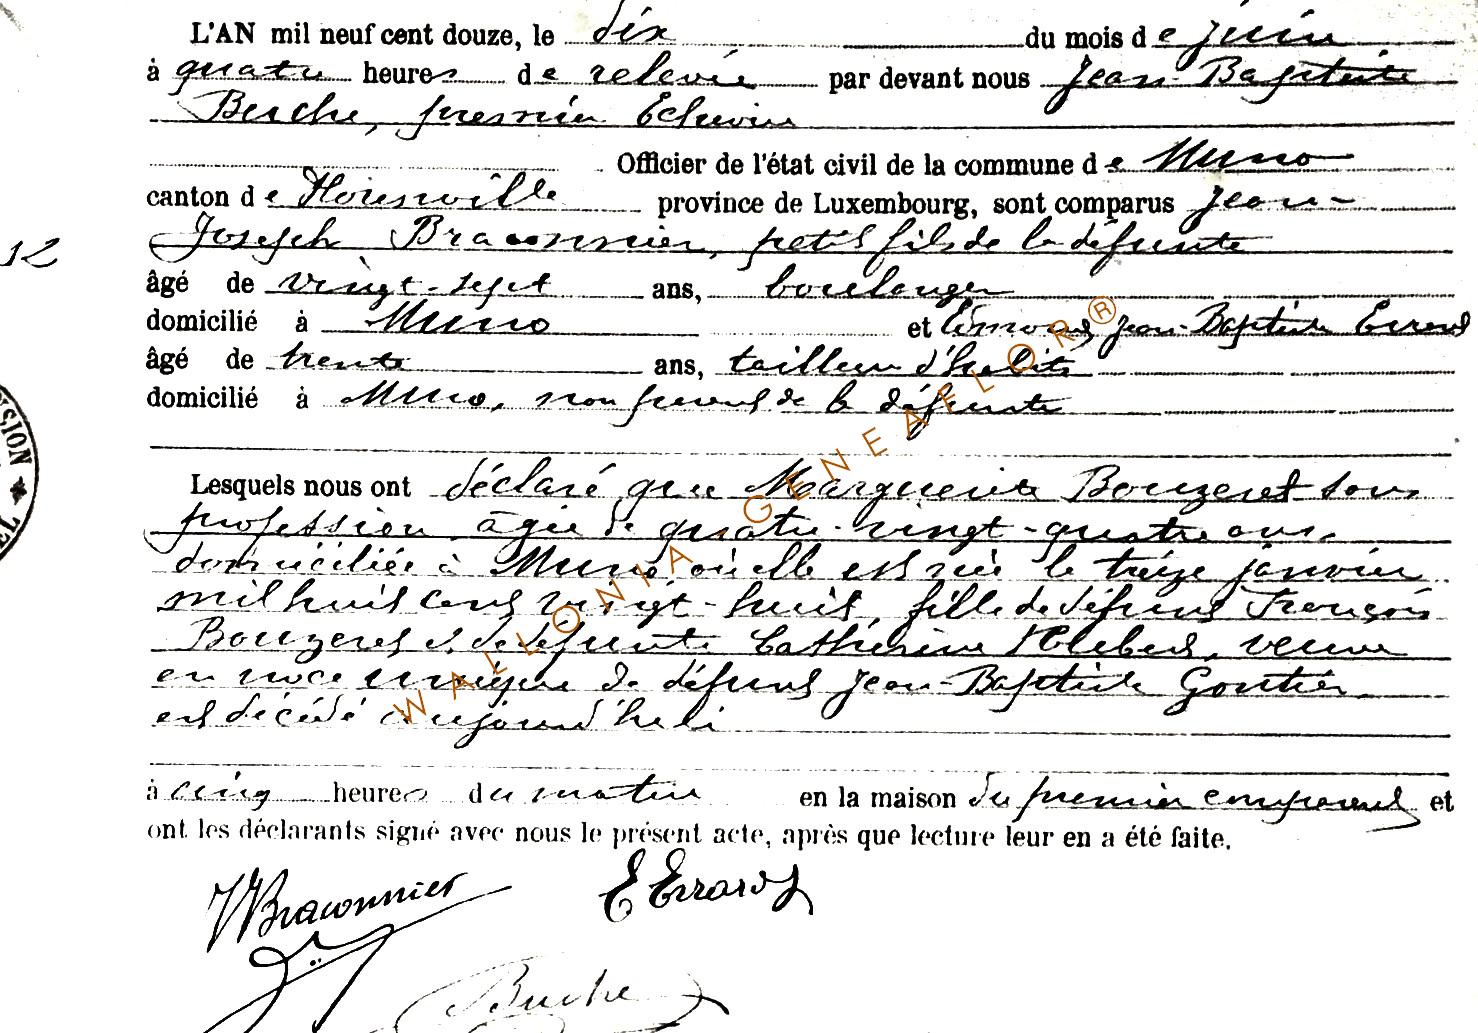 L'AN mil neuf cent douze, le dix du mois de juin
à quatre heures de relevée par devant nous Jean-Baptiste
Buche, premier Echevin
Officier de l'état civil de la commune de Muno
canton de Florenville province de Luxembourg, sont comparus Jean-
Joseph Braconnier, petit fils de la défunte
12
âgé de vingt-sept ans, boulanger
domicilié à Muno et Edmond Jean-Baptiste Errard
âgé de trente ans, tailleur d'habits
domicilié à Muno, non parent de la défunte
NSION
Lesquels nous ont déclaré que Marguerite Bouzeret sans
profession âgée de quatre-vingt-quatre ans
domiciliée à Muno où elle est née le treize janvier
mil huit cent vingt-huit, fille de défunt François
Bouzeret et de défunte Catherine veuve
en noce unique de défunt Jean-Baptiste Gontier
est décédé aujourd'hui
à cinq heures du matin en la maison du premier comparant et
ont les déclarants signé avec nous le présent acte, après que lecture leur en a été faite.
JJBraconnier E Errard
Buche
WALLONIA GENEAFLOR®